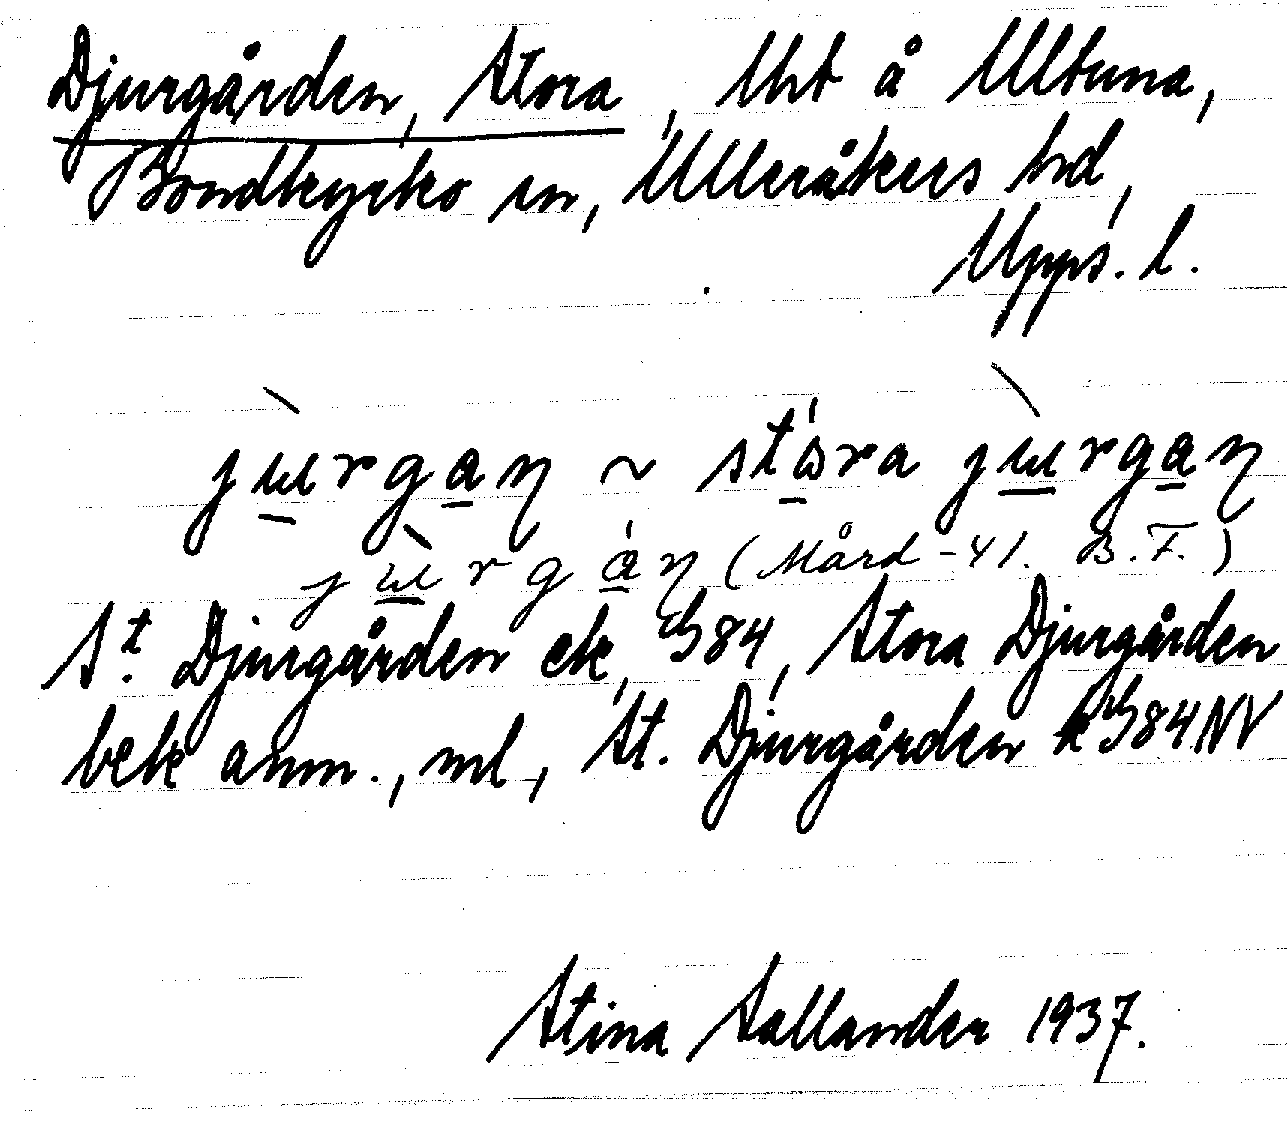 Djurgården, Stora, lht å Ultuna,
Bondkyrko sn, Ulleråkers hd,
Upps. l.
jɯ̀rgaŋ ~ stώra jɯ̀rgaŋ
jɯ̀rgáŋ (Mård -41. B.F.)
St. Djurgården ek, GS84, Stora Djurgården
bek anm., ml, St. Djurgården k GS84NV
Stina Sallander 1937.